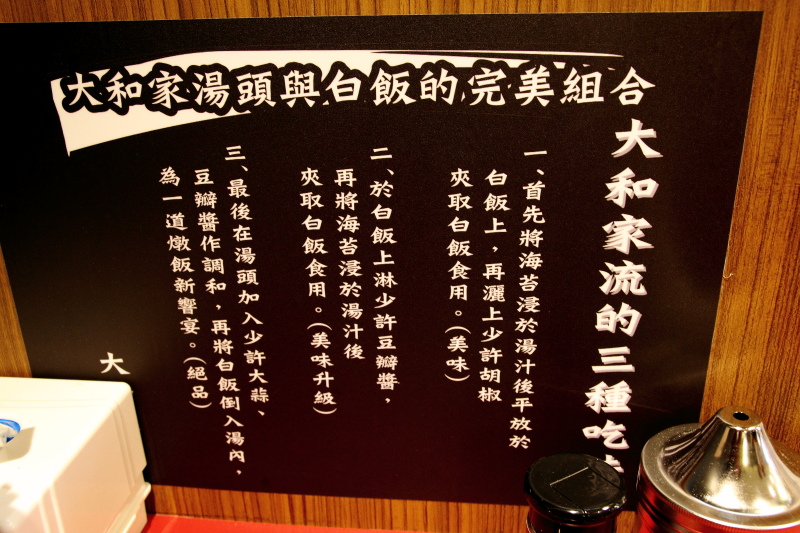 大和家湯頭與白飯的完美組合
大和家流的三種吃
一、首先將海苔浸於湯汁後平放於
白飯上，再灑上少許胡椒
夾取白飯食用。(美味)
二、於白飯上淋少許豆瓣醬，
再將海苔浸於湯汁後
夾取白飯食用。(美味升級)
三、最後在湯頭加入少許大蒜、
豆瓣醬作調和，再將白飯倒入湯內，
為一道燉飯新饗宴。(絕品)
大